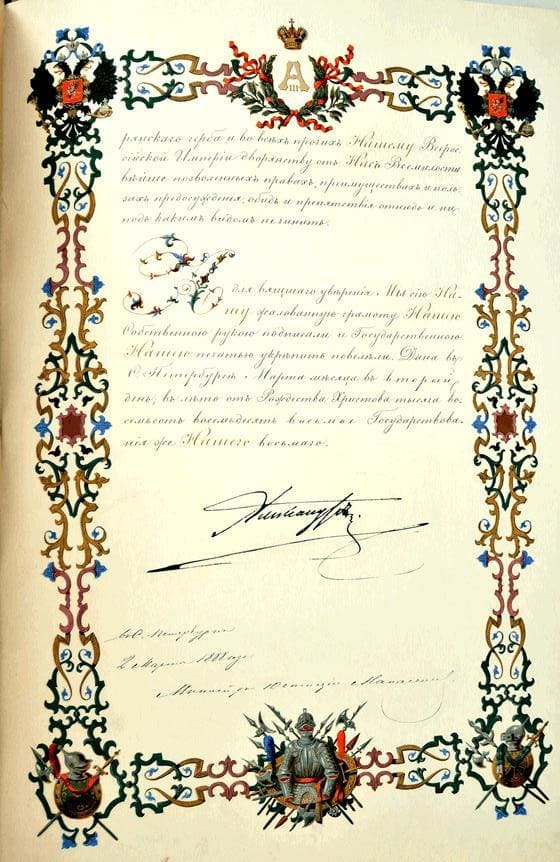 А III
рянскаго герба и во всѣхъ прочихъ Нашему Всерос-
сійской Имперіи дворянству отъ Насъ Всемилости
вѣйше позволенныхъ правахъ, преимуществахъ и поль
захъ предосужденія, обидъ и препятствія отнюдь и ни
подъ какимъ видомъ не чинить.
Для вящшаго увѣренія Мы сію На-
шу жалованную грамоту Нашею
Собственною рукою подписали и Государственною
Нашею печатью укрѣпить повелѣли. Дана въ
С. Петербургѣ Марта мѣсяца въ вторый
день, въ лѣто отъ Рождества Христова тысяча во
семьсотъ восемьдесятъ восьмое Государствова
нія же Нашего восьмаго.
Александръ
въ С. Петербургѣ
2 Марта 1888 года
Министръ Юстиціи Манасеинъ